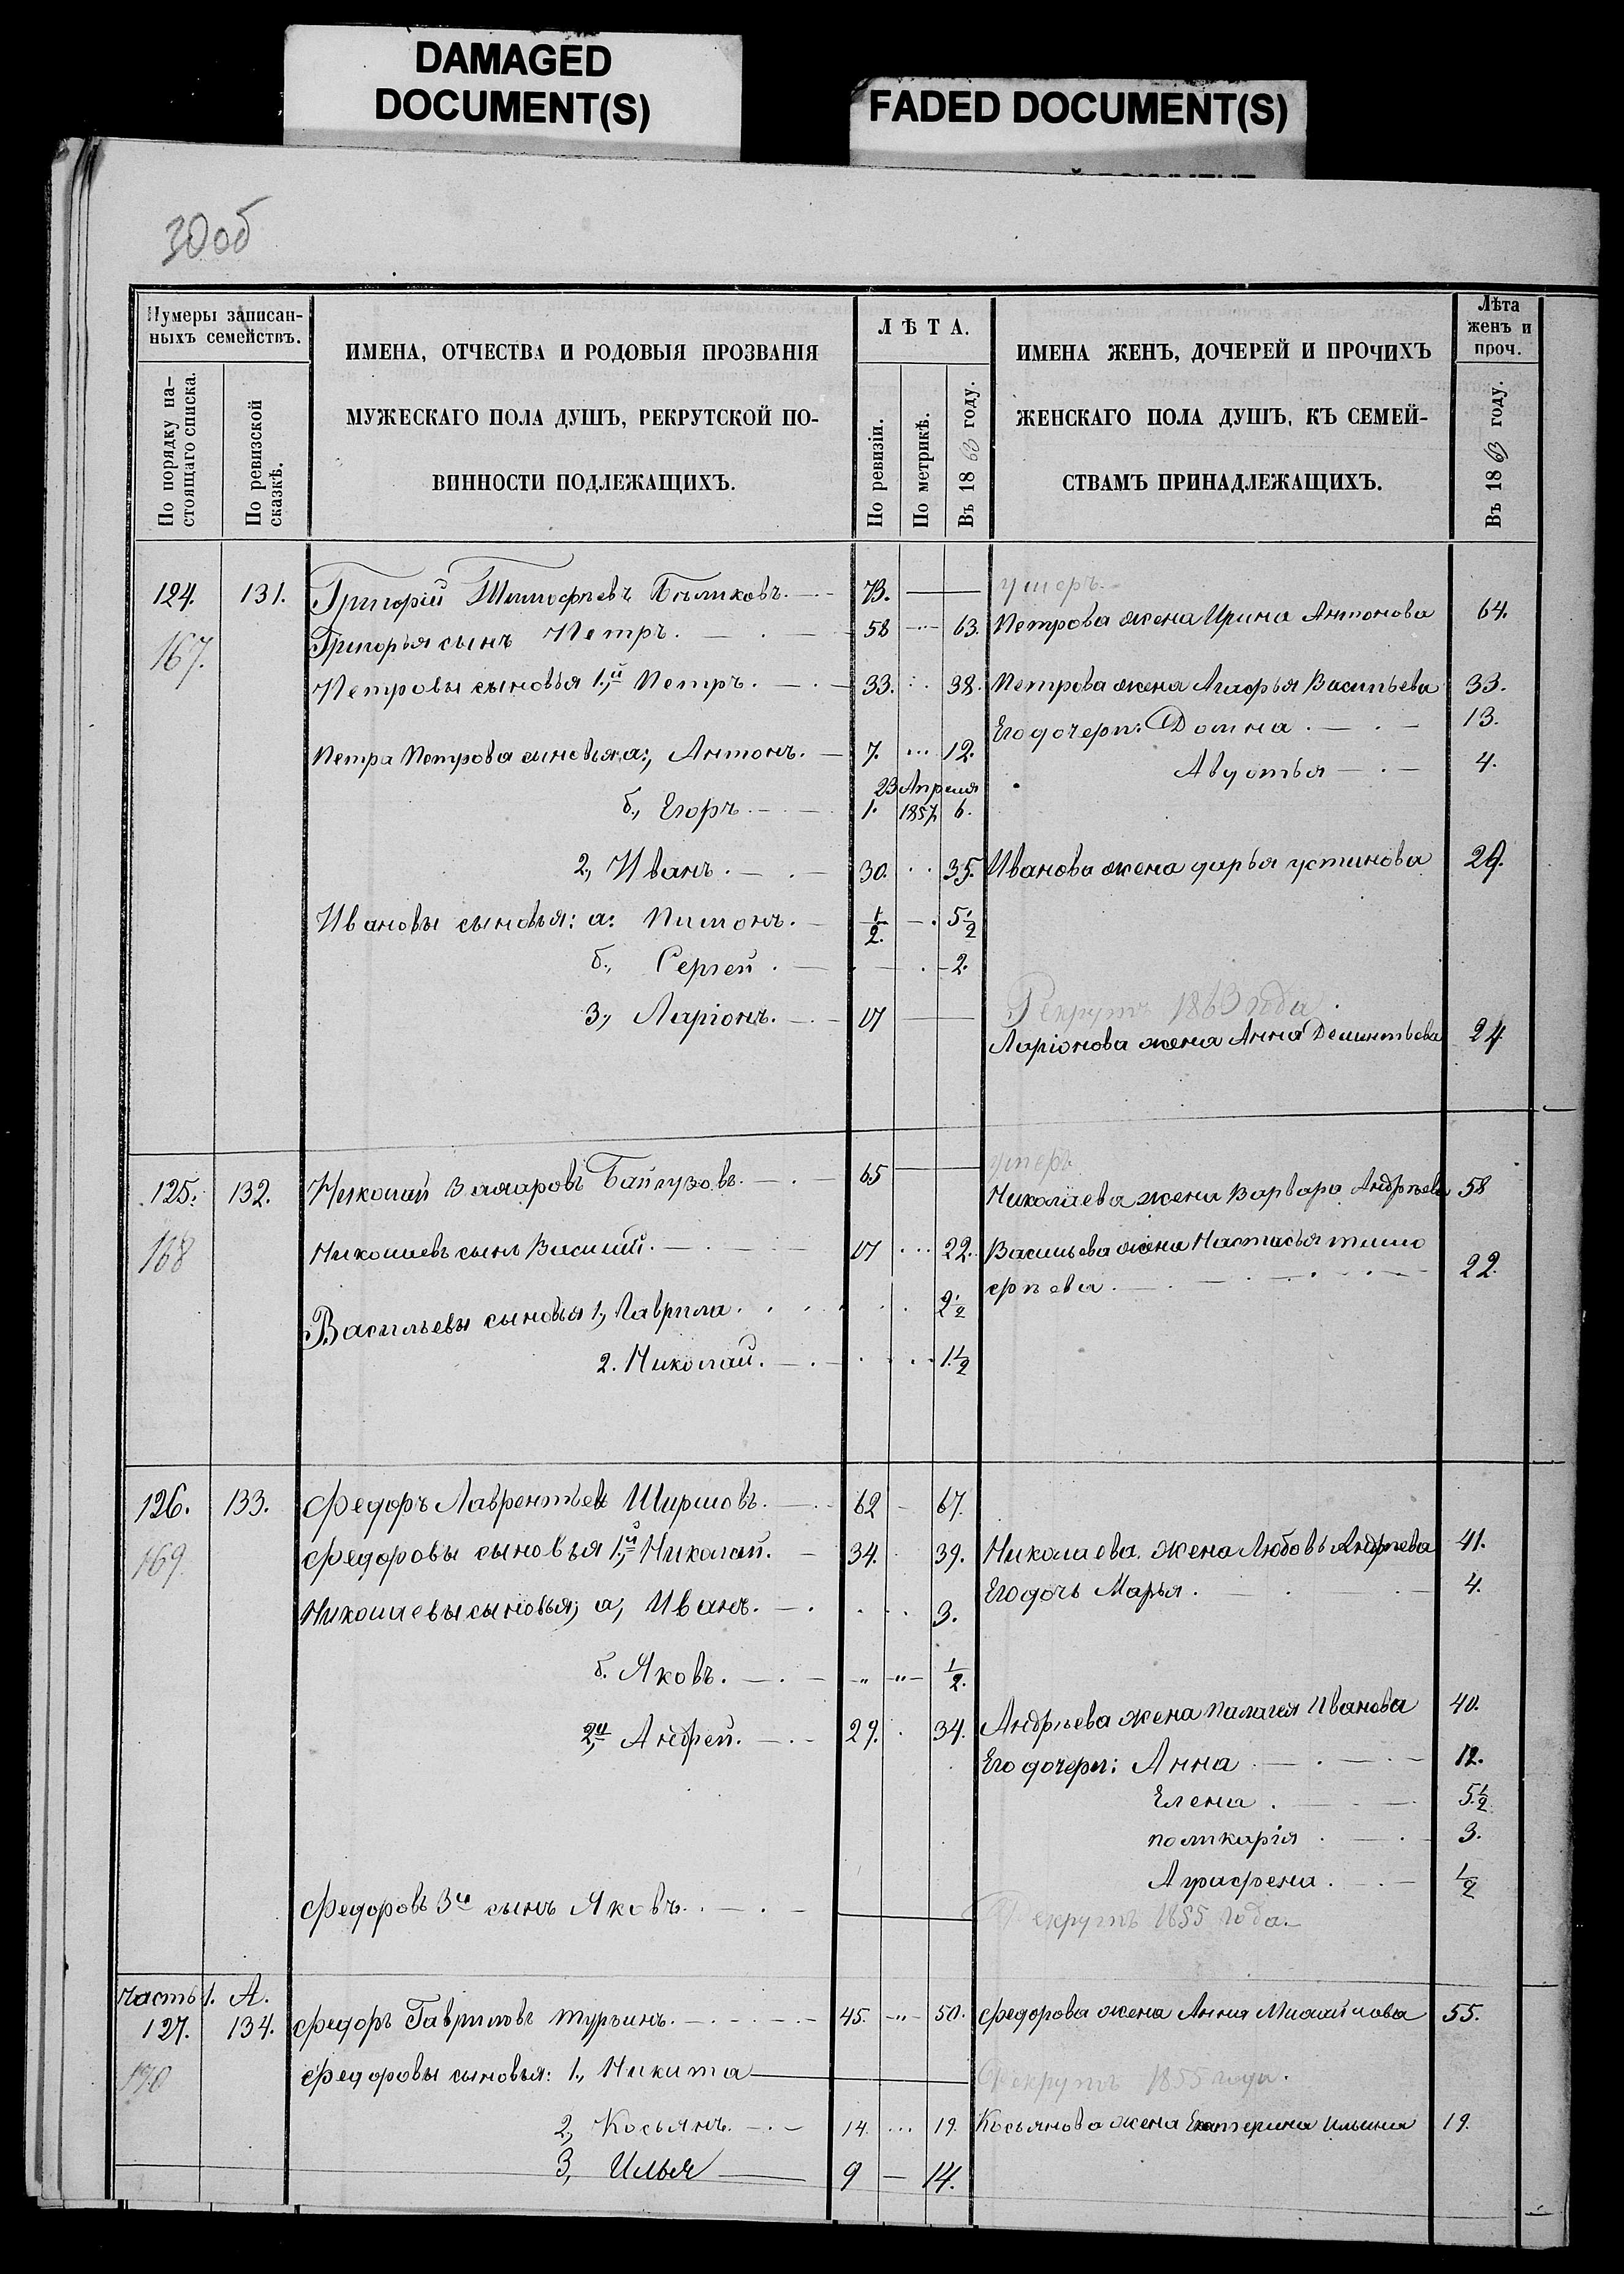 DAMAGED
DOCUMENT(S)
FADED DOCUMENT(S)
30об
Нумеры записан-
ныхъ семействъ.
По порядку на-
стоящаго списка.
По ревизской
сказкѣ.
ИМЕНА, ОТЧЕСТВА И РОДОВЫЯ ПРОЗВАНІЯ
МУЖЕСКАГО ПОЛА ДУШЪ, РЕКРУТСКОЙ ПО-
ВИННОСТИ ПОДЛЕЖАЩИХЪ.
ЛѢТА.
По ревизіи.
По метрикѣ.
Въ 1863 году.
ИМЕНА ЖЕНЪ, ДОЧЕРЕЙ И ПРОЧИХЪ
ЖЕНСКАГО ПОЛА ДУШЪ, КЪ СЕМЕЙ-
СТВАМЪ ПРИНАДЛЕЖАЩИХЪ.
Лѣта
женъ и
проч.
Въ 1863 году.
124. 131. Григорій Тимофѣевъ Бѣликовъ. 73. умеръ.
167. Григорья сынъ Петръ. 58 63. Петрова жена Ирина Антонова 64.
Петровы сыновья 1,й Петръ. 33. 38. Петрова жена Агафья Васильева 33.
Его дочери: Домна 13.
Петра Петрова сыновья: а, Антонъ. 7. 12.
Авдотья 4.
23 Апреля
б., Егоръ 1. 1857 6.
2, Иванъ. 30. 35. Иванова жена дарья устинова 29.
Ивановы сыновья: а: Пимонъ. 1/2. 5 1/2
б., Сергей. 2.
3, Ларіонъ. 17 Рекрутъ 1863 года.
Ларіонова жена Анна Дементьева 24
125. 132. Николай Байгузовъ. 65 умеръ
Николаева жена Варвара Андрѣева 58
168 Николаевъ сынъ Василий. 17 22. Васильева жена Настасья тимо
фѣева. 22.
Васильевы сыновья 1, Гаврила. 2 1/2
2. Николай. 1. 1/2
126. 133. Федоръ Лаврентьевъ Ширшовъ. 62 67.
169 Федоровы сыновья 1,й Николай. 34. 39. Николаева жена Любовь Андрѣева 41.
Его дочь Марья. 4.
Николаевы сыновья; а, Иванъ. 3.
б. Яковъ. 1/2.
2,й Андрей. 29. 34. Андрѣева жена Палагея Иванова 40.
Его дочери: Анна 12.
Елена. 5 1/2
поликарія 3.
Аграфена. 1/2
Федоровъ 3й сынъ Яковъ. Рекрутъ 1855 года.
Часть 1. А.
127. 134. Федоръ Гавриловъ Турзинъ. 45. 50. Федорова жена Анна Михайлова 55.
170 Федоровы сыновья: 1., Никита Рекрутъ 1855 года.
2, Косьянъ. 14. 19. Косьянова жена Екатерина Ильина 19.
3, Илья 9 14.